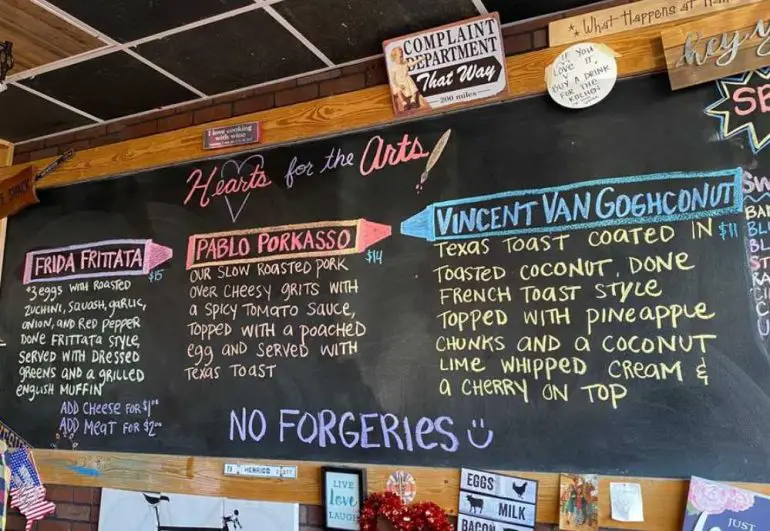 What Happens at
COMPLAINT
DEPARTMENT
That Way
200 miles
IF YOU
LOVE IT,
BUY A DRINK
FOR THE
KITCHEN
I love cooking
with wine
Hearts for the Arts
FRIDA FRITTATA
$15
*3 eggs with roasted
zuchini, squash, garlic,
onion, and red pepper
done frittata style,
served with dressed
greens and a grilled
english muffin
ADD CHEESE FOR $1.00
ADD MEAT FOR $2.00
PABLO PORKASSO
$14
OUR SLOW ROASTED PORK
OVER CHEESY GRITS WITH
A SPICY TOMATO SAUCE,
TOPPED WITH A POACHED
egg AND SERVED WITH
TEXAS TOAST
VINCENT VAN GOGHCONUT
$11
TEXAS TOAST COATED IN
TOASTED COCONUT, DONE
FRENCH TOAST STYLE
TOPPED WITH PINEAPPLE
CHUNKS AND A COCONUT
LIME WHIPPED CREAM &
A CHERRY ON TOP
NO FORGERIES
HENRICO
LIVE
love
LAUGH
EGGS
MILK
BACON
JUST